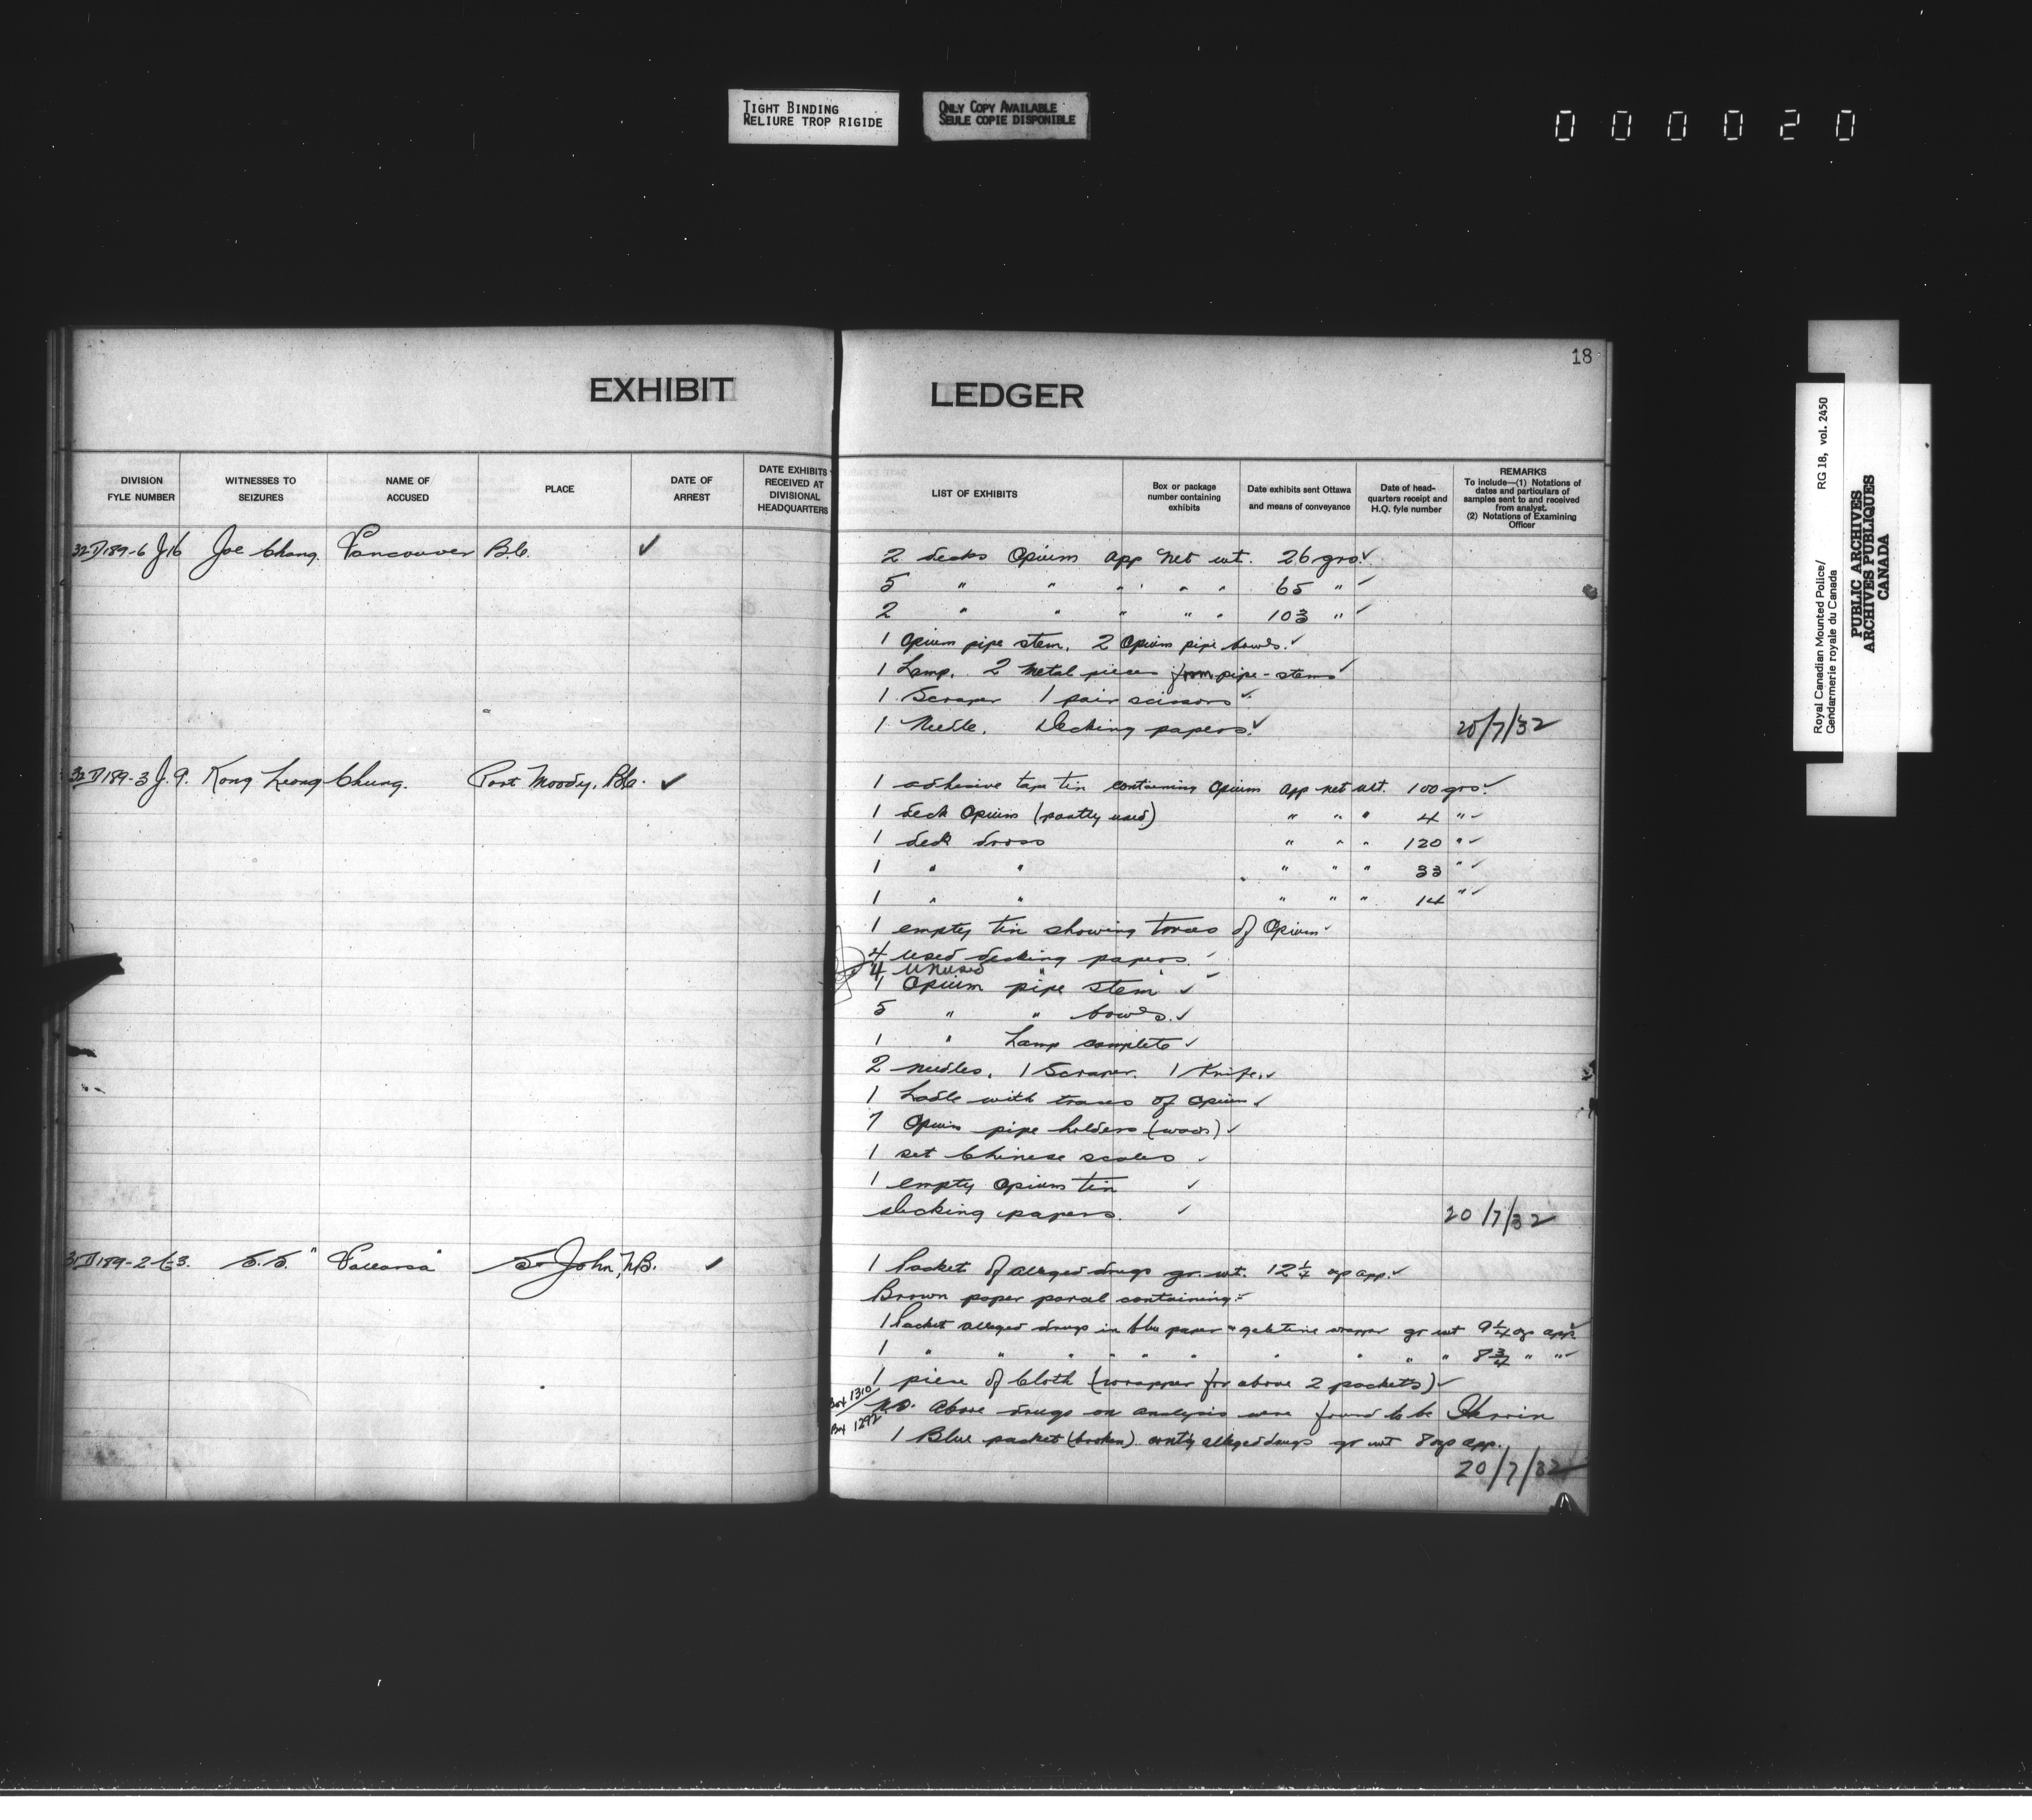 TIGHT BINDING
RELIURE TROP RIGIDE
ONLY COPY AVAILABLE
SEULE COPIE DISPONIBLE
0 0 0 0 2 0
18
EXHIBIT LEDGER
DIVISION FYLE NUMBER
WITNESSES TO SEIZURES
NAME OF ACCUSED
PLACE
DATE OF ARREST
DATE EXHIBITS RECEIVED AT DIVISIONAL HEADQUARTERS
LIST OF EXHIBITS
Box or package number containing exhibits
Date exhibits sent Ottawa and means of conveyance
Date of head-quarters receipt and H.Q. fyle number
REMARKS
To include—(1) Notations of dates and particulars of samples sent to and received from analyst.
(2) Notations of Examining Officer
32D189-6 J.16 Joe Chong. Vancouver B.C. ✓
2 decks Opium app net wt. 26 grs. ✓
5 " " " " " 65 " ✓
2 " " " " " 103 " ✓
1 Opium pipe stem. 2 Opium pipe bowls. ✓
1 Lamp. 2 Metal pieces from pipe-stems ✓
1 Scraper 1 pair scissors ✓
1 Needle. Decking papers. ✓ 20/7/32
32D189-3 J.9. Kong Leong Chung. Port Moody, B.C. ✓
1 adhesive tape tin containing Opium app net wt. 100 grs. ✓
1 deck Opium (partly used) " " " 4 " ✓
1 deck dross " " " 120 " ✓
1 " " " " " 33 " ✓
1 " " " " " 14 " ✓
1 empty tin showing traces of Opium ✓
4 used decking papers. ✓
4 unused " " ✓
1 Opium pipe stem ✓
5 " " bowls. ✓
1 " Lamp complete ✓
2 needles. 1 Scraper. 1 Knife. ✓
1 Ladle with traces of Opium ✓
7 Opium pipe holders (wood) ✓
1 set Chinese scales ✓
1 empty Opium tin ✓
Decking papers. ✓ 20/7/32
S.S. " " St John, N.B. ✓
1 Packet of alleged drugs gr. wt. 12 1/4 ozs app. ✓
Brown paper parcel containing:-
1 Packet alleged drugs in blue paper " gelatine wrapper gr wt 9 1/4 ozs app. ✓
1 " " " " " " " " " " 8 3/4 " " ✓
1 piece of Cloth (wrapper for above 2 packets) ✓
Box 1310
Box 1292
N.B. Above drugs on analysis were found to be Heroin
1 Blue packet (broken) contg alleged drugs gr wt 8 ozs app.
20/7/32
Royal Canadian Mounted Police/
Gendarmerie royale du Canada
RG 18, vol. 2450
PUBLIC ARCHIVES
ARCHIVES PUBLIQUES
CANADA